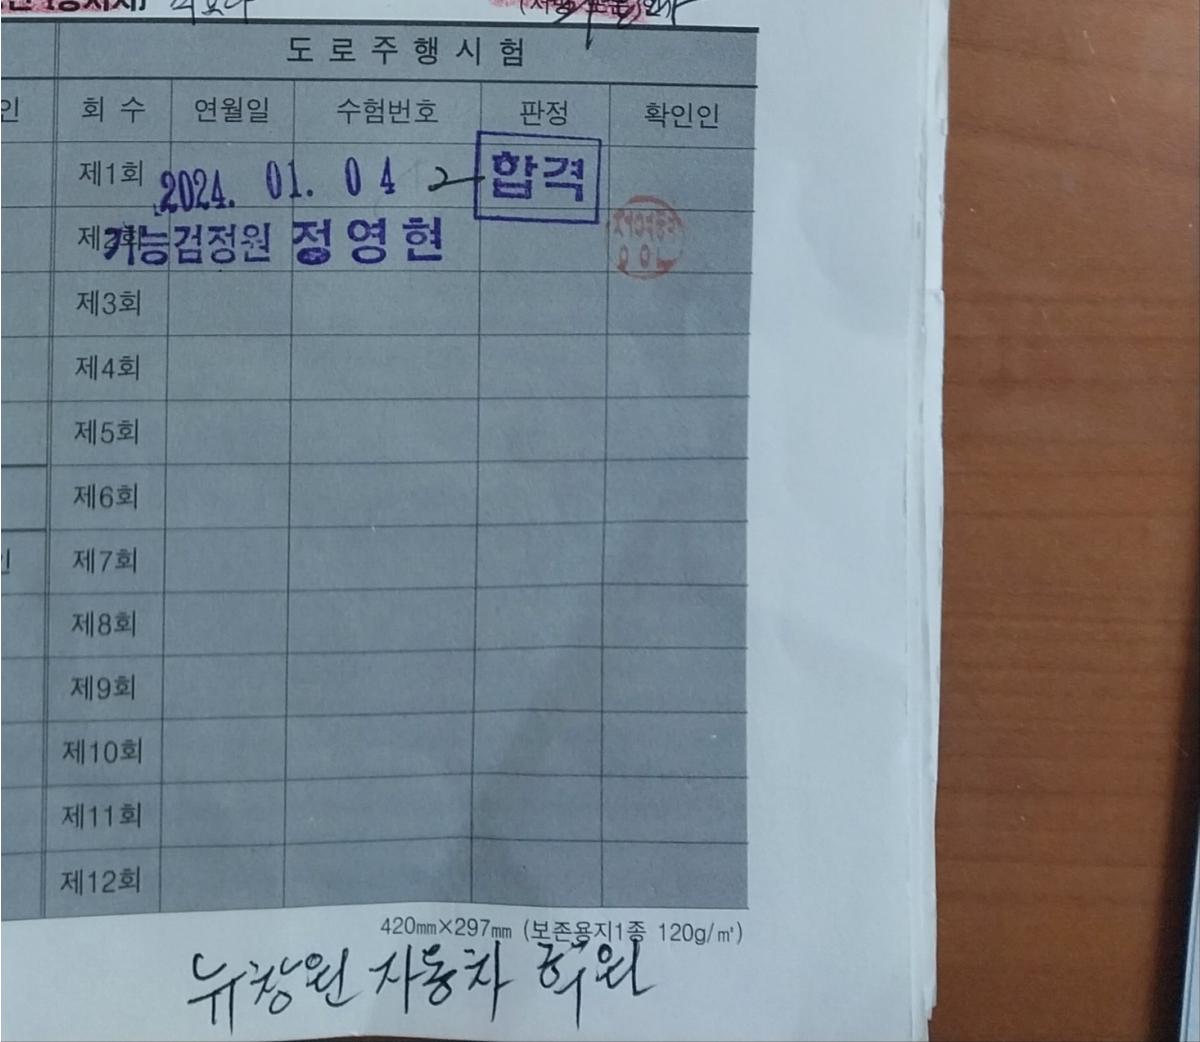 도로주행시험
회 수 연월일 수험번호 판정 확인인
제1회 2024. 01. 04 2 합격
제2회 기능검정원 정영현
제3회
제4회
제5회
제6회
제7회
제8회
제9회
제10회
제11회
제12회
420mm×297mm (보존용지1종 120g/㎡)
뉴창원 자동차 학원